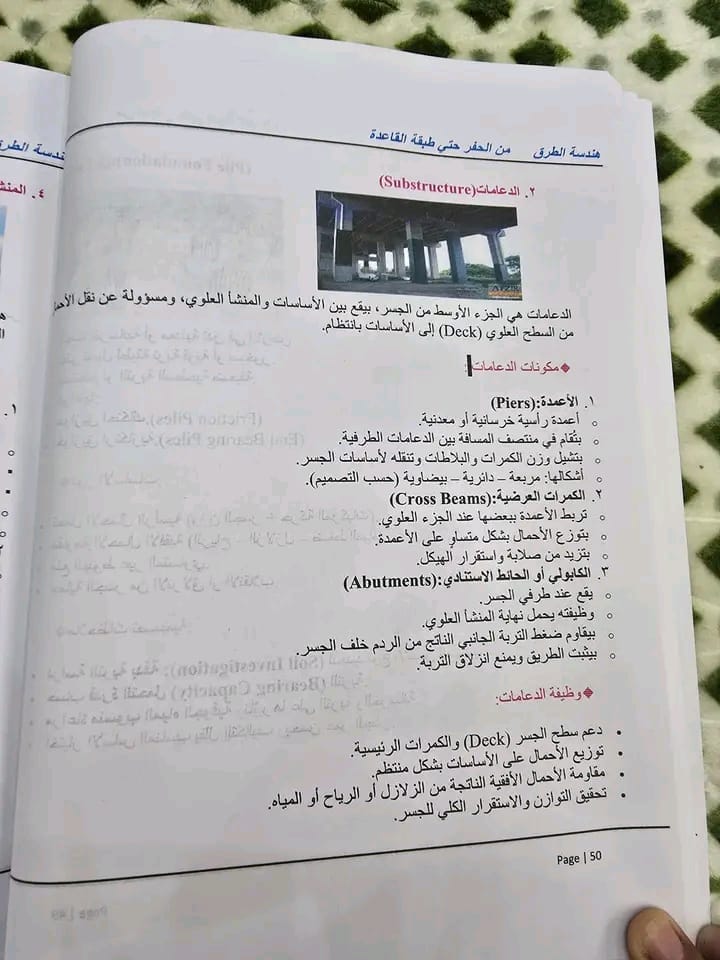 هندسة الطرق من الحفر حتي طبقة القاعدة
٢. الدعامات(Substructure)
الدعامات هي الجزء الأوسط من الجسر، بيقع بين الأساسات والمنشأ العلوي، ومسؤولة عن نقل
من السطح العلوي (Deck) إلى الأساسات بانتظام.
❖مكونات الدعامات:
١. الأعمدة:(Piers)
○ أعمدة رأسية خرسانية أو معدنية.
○ بتُقام في منتصف المسافة بين الدعامات الطرفية.
○ بتشيل وزن الكمرات والبلاطات وتنقله لأساسات الجسر.
○ أشكالها: مربعة – دائرية – بيضاوية (حسب التصميم).
٢. الكمرات العرضية:(Cross Beams)
○ تربط الأعمدة ببعضها عند الجزء العلوي.
○ بتوزع الأحمال بشكل متساوٍ على الأعمدة.
○ بتزيد من صلابة واستقرار الهيكل.
٣. الكابولي أو الحائط الاستنادي:(Abutments)
○ يقع عند طرفي الجسر.
○ وظيفته يحمل نهاية المنشأ العلوي.
○ بيقاوم ضغط التربة الجانبي الناتج من الردم خلف الجسر.
○ بيثبت الطريق ويمنع انزلاق التربة.
❖وظيفة الدعامات:
• دعم سطح الجسر (Deck) والكمرات الرئيسية.
• توزيع الأحمال على الأساسات بشكل منتظم.
• مقاومة الأحمال الأفقية الناتجة من الزلازل أو الرياح أو المياه.
• تحقيق التوازن والاستقرار الكلي للجسر.
Page | 50